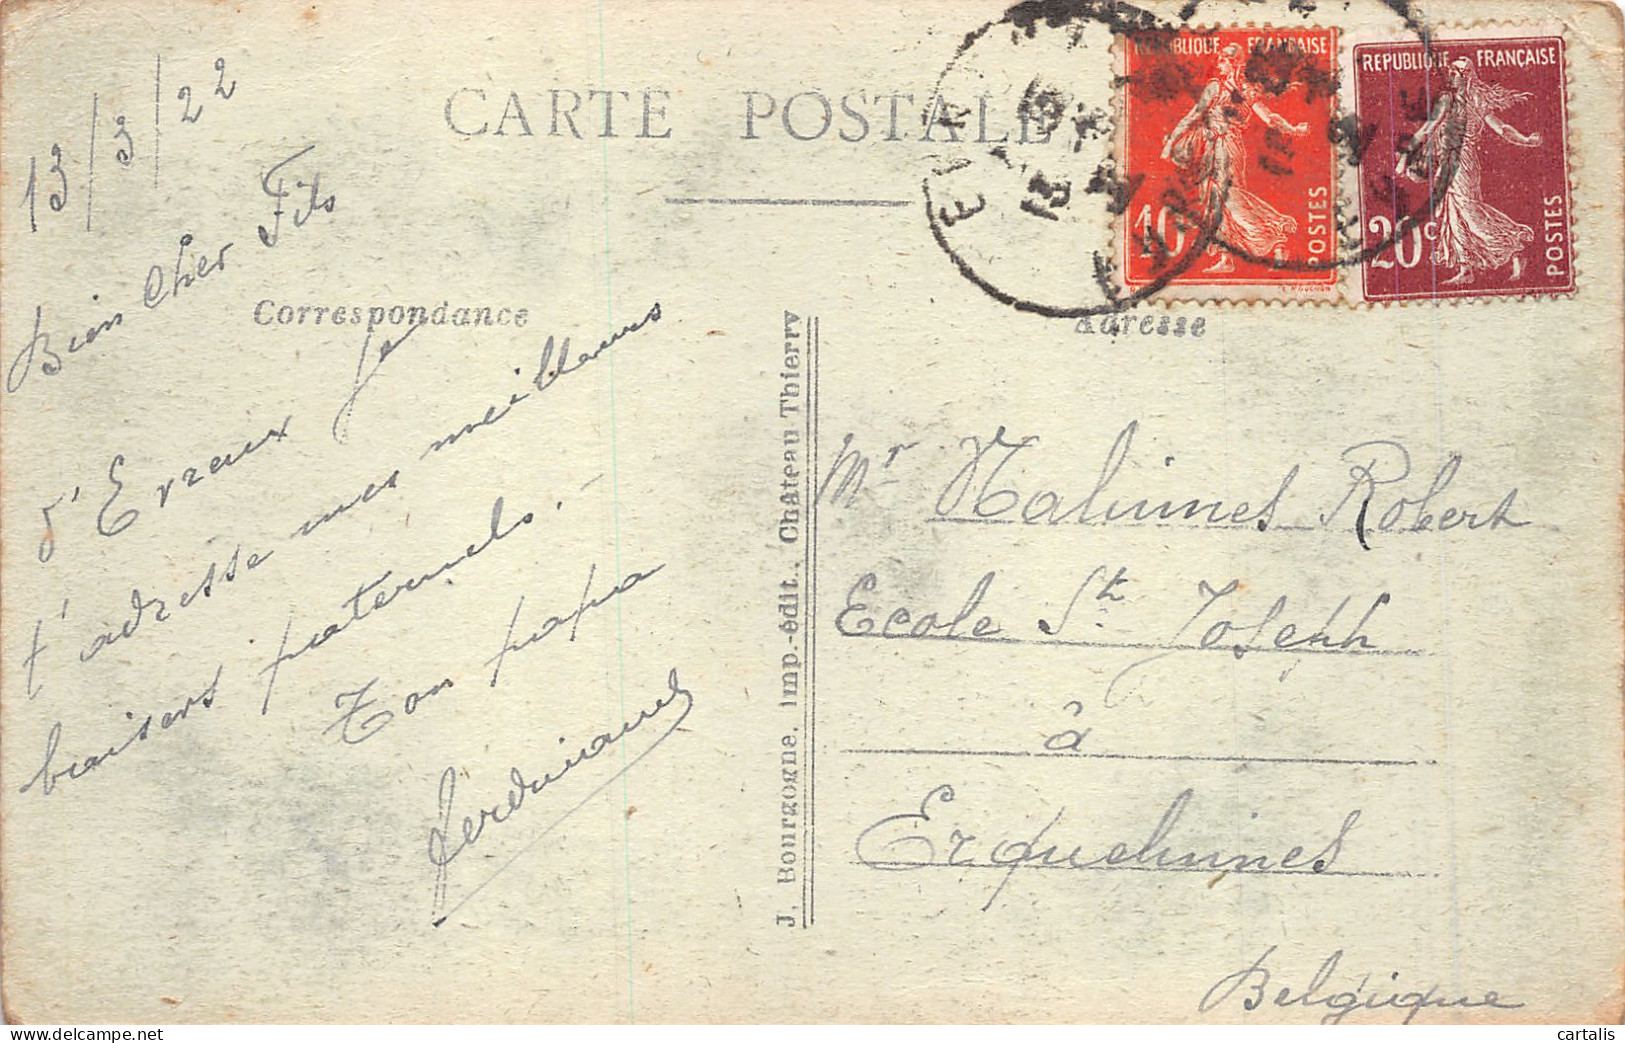 CARTE POSTALE
13/3/22
Bien Cher Fils
Correspondance
d'Evreux je
t'adresse mes meilleurs
baisers paternels.-
Ton papa
Ferdinand
J. Bourgogne, Imp.-édit., Château Thierry
REPUBLIQUE FRANÇAISE
10
POSTES
REPUBLIQUE FRANÇAISE
20c
POSTES
Adresse
Mr Malinnes Robert
Ecole St Joseph
à
Erquelinnes
Belgique
cartalis